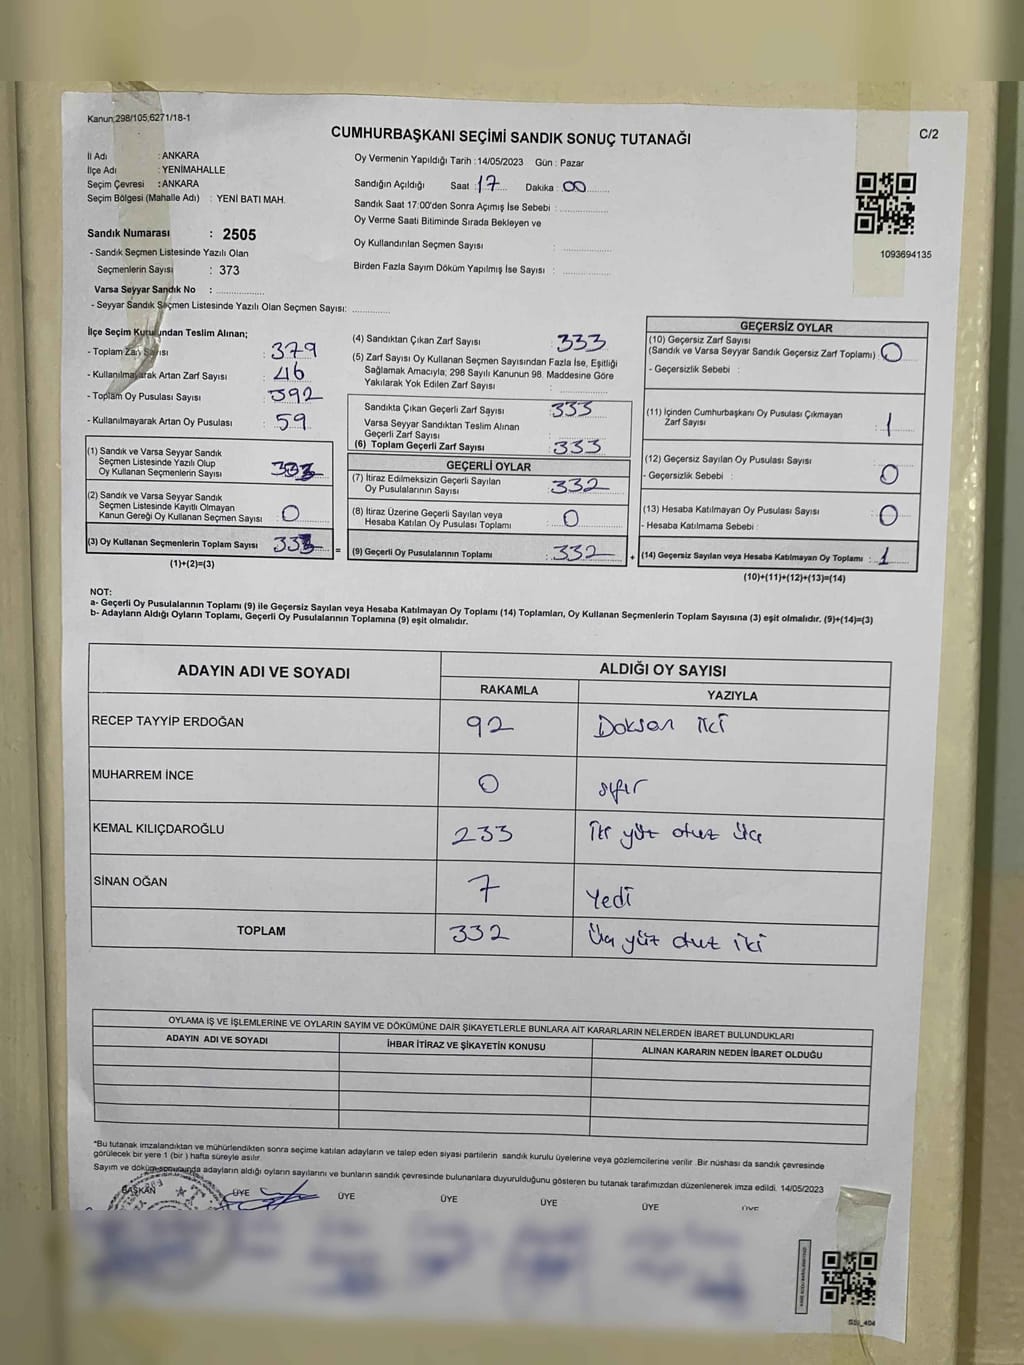 Kanun;298/105,6271/18-1
CUMHURBAŞKANI SEÇİMİ SANDIK SONUÇ TUTANAĞI
C/2
İl Adı : ANKARA
İlçe Adı : YENİMAHALLE
Seçim Çevresi : ANKARA
Seçim Bölgesi (Mahalle Adı) : YENİ BATI MAH.
Sandık Numarası : 2505
- Sandık Seçmen Listesinde Yazılı Olan
Seçmenlerin Sayısı : 373
Varsa Seyyar Sandık No :
- Seyyar Sandık Seçmen Listesinde Yazılı Olan Seçmen Sayısı:
Oy Vermenin Yapıldığı Tarih : 14/05/2023 Gün : Pazar
Sandığın Açıldığı Saat : 17 Dakika : 00
Sandık Saat 17:00'den Sonra Açımış İse Sebebi :
Oy Verme Saati Bitiminde Sırada Bekleyen ve
Oy Kullandırılan Seçmen Sayısı :
Birden Fazla Sayım Döküm Yapılmış İse Sayısı :
1093694135
İlçe Seçim Kurulundan Teslim Alınan;
- Toplam Zarf Sayısı : 379
- Kullanılmayarak Artan Zarf Sayısı : 46
- Toplam Oy Pusulası Sayısı : 392
- Kullanılmayarak Artan Oy Pusulası : 59
(1) Sandık ve Varsa Seyyar Sandık
Seçmen Listesinde Yazılı Olup
Oy Kullanan Seçmenlerin Sayısı 333
(2) Sandık ve Varsa Seyyar Sandık
Seçmen Listesinde Kayıtlı Olmayan
Kanun Gereği Oy Kullanan Seçmen Sayısı : 0
(3) Oy Kullanan Seçmenlerin Toplam Sayısı 333 =
(1)+(2)=(3)
(4) Sandıktan Çıkan Zarf Sayısı : 333
(5) Zarf Sayısı Oy Kullanan Seçmen Sayısından Fazla İse, Eşitliği
Sağlamak Amacıyla; 298 Sayılı Kanunun 98. Maddesine Göre
Yakılarak Yok Edilen Zarf Sayısı :
Sandıkta Çıkan Geçerli Zarf Sayısı : 333
Varsa Seyyar Sandıktan Teslim Alınan
Geçerli Zarf Sayısı :
(6) Toplam Geçerli Zarf Sayısı : 333
GEÇERLİ OYLAR
(7) İtiraz Edilmeksizin Geçerli Sayılan
Oy Pusulalarının Sayısı : 332
(8) İtiraz Üzerine Geçerli Sayılan veya
Hesaba Katılan Oy Pusulası Toplamı : 0
(9) Geçerli Oy Pusulalarının Toplamı : 332 +
GEÇERSİZ OYLAR
(10) Geçersiz Zarf Sayısı
(Sandık ve Varsa Seyyar Sandık Geçersiz Zarf Toplamı) : 0
- Geçersizlik Sebebi :
(11) İçinden Cumhurbaşkanı Oy Pusulası Çıkmayan
Zarf Sayısı : 1
(12) Geçersiz Sayılan Oy Pusulası Sayısı :
- Geçersizlik Sebebi : 0
(13) Hesaba Katılmayan Oy Pusulası Sayısı : 0
- Hesaba Katılmama Sebebi :
(14) Geçersiz Sayılan veya Hesaba Katılmayan Oy Toplamı : 1
(10)+(11)+(12)+(13)=(14)
NOT:
a- Geçerli Oy Pusulalarının Toplamı (9) ile Geçersiz Sayılan veya Hesaba Katılmayan Oy Toplamı (14) Toplamları, Oy Kullanan Seçmenlerin Toplam Sayısına (3) eşit olmalıdır. (9)+(14)=(3)
b- Adayların Aldığı Oyların Toplamı, Geçerli Oy Pusulalarının Toplamına (9) eşit olmalıdır.
ADAYIN ADI VE SOYADI
ALDIĞI OY SAYISI
RAKAMLA YAZIYLA
RECEP TAYYİP ERDOĞAN 92 Doksan iki
MUHARREM İNCE 0 sıfır
KEMAL KILIÇDAROĞLU 233 İki yüz otuz üç
SİNAN OĞAN 7 Yedi
TOPLAM 332 Üç yüz otuz iki
OYLAMA İŞ VE İŞLEMLERİNE VE OYLARIN SAYIM VE DÖKÜMÜNE DAİR ŞİKAYETLERLE BUNLARA AİT KARARLARIN NELERDEN İBARET BULUNDUKLARI
ADAYIN ADI VE SOYADI İHBAR İTİRAZ VE ŞİKAYETİN KONUSU ALINAN KARARIN NEDEN İBARET OLDUĞU
*Bu tutanak imzalandıktan ve mühürlendikten sonra seçime katılan adayların ve talep eden siyasi partilerin sandık kurulu üyelerine veya gözlemcilerine verilir. Bir nüshası da sandık çevresinde
görülecek bir yere 1 (bir ) hafta süreyle asılır.
Sayım ve döküm sonucunda adayların aldığı oyların sayılarını ve bunların sandık çevresinde bulunanlara duyurulduğunu gösteren bu tutanak tarafımızdan düzenlenerek imza edildi. 14/05/2023
BAŞKAN ÜYE ÜYE ÜYE ÜYE ÜYE ÜYE